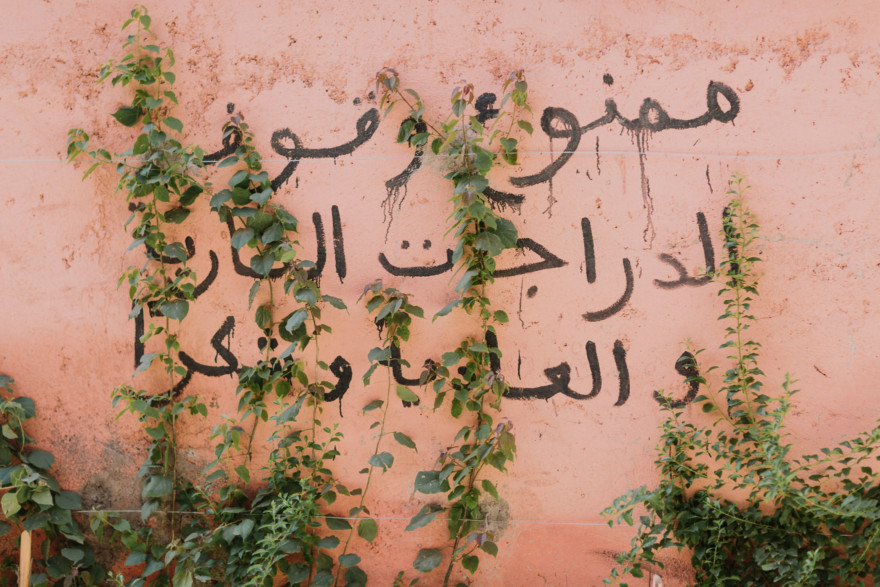 ممنوع وقوف
الدراجات النارية
و العا وشكرا